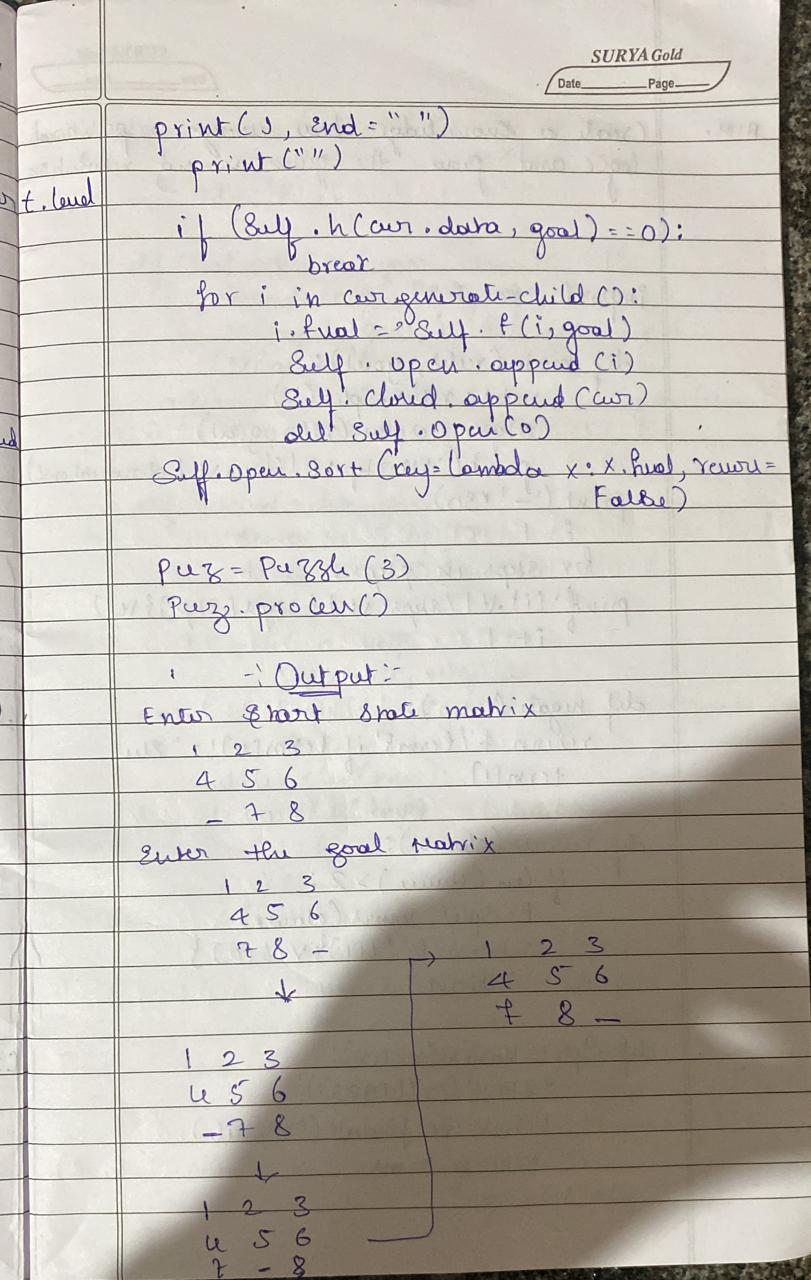 SURYA Gold
Date Page
print(J, End = " ")
print ("")
t. level
if (Self . h(cur . data, goal) = = 0):
break
for i in cur generate-child ():
i. fval = Self . f (i, goal)
Self . open . append (i)
Self . closed . append (cur)
del Self . Open (0)
Self . Open . Sort (key = lambda x : x. fval, reverse =
False)
Puz = Puzzle (3)
Puz . process()
-: Output :-
Enter Start State matrix
1 2 3
4 5 6
_ 7 8
Enter the goal Matrix
1 2 3
4 5 6
7 8 _
↓
1 2 3
4 5 6
_ 7 8
↓
1 2 3
4 5 6
7 _ 8
→ 1 2 3
4 5 6
7 8 _